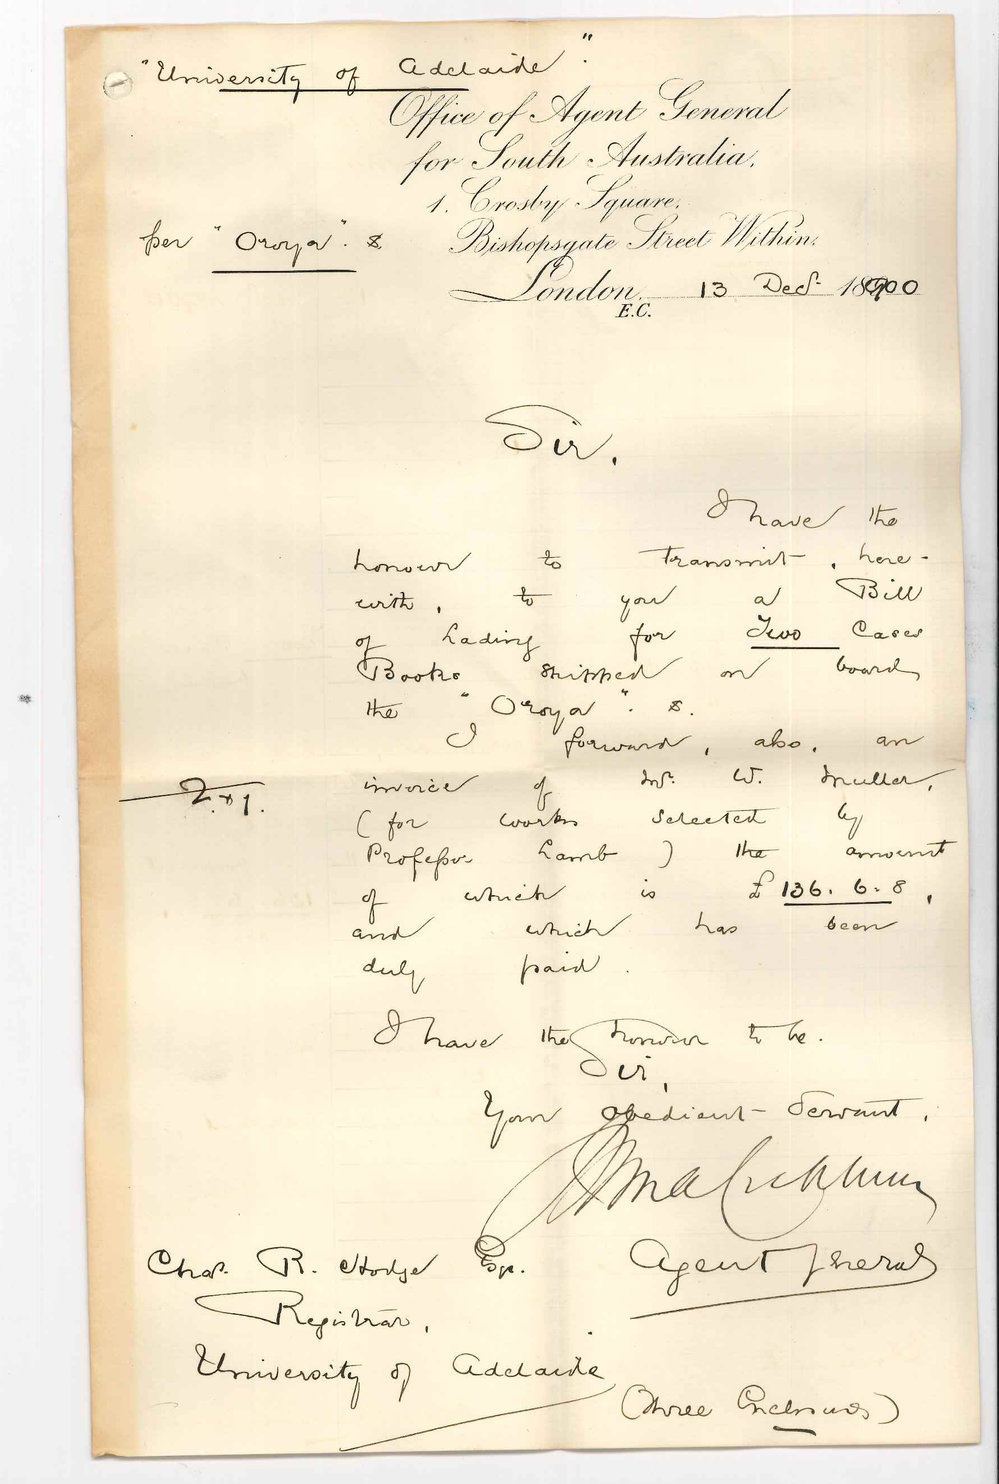 "University of Adelaide".
Office of Agent General
for South Australia,
1. Crosby Square,
per "Oroya". s
Bishopsgate Street Within.
London, 13 Decr. 1900
E.C.
Sir,
I have the
honour to transmit, here-
with, to you a Bill
of Lading for Two Cases
Books shipped on board
the "Oroya". s.
I forward, also, an
invoice of Mr. W. Muller,
(for works selected by
Professor Lamb) the amount
of which is £136. 6. 8,
and which has been
duly paid.
I have the honour to be.
Sir,
Your obedient Servant,
Agent General
Chas. R. Hodge Esq.
Registrar,
University of Adelaide
(three Enclosures)